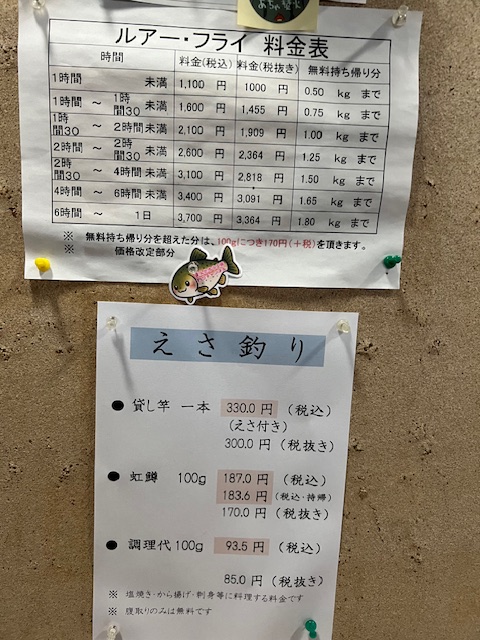 ルアー・フライ 料金表
時間 料金(税込) 料金(税抜き) 無料持ち帰り分
1時間 未満 1,100 円 1000 円 0.50 kg まで
1時間 ～ 1時間30 未満 1,600 円 1,455 円 0.75 kg まで
1時間30 ～ 2時間 未満 2,100 円 1,909 円 1.00 kg まで
2時間 ～ 2時間30 未満 2,600 円 2,364 円 1.25 kg まで
2時間30 ～ 4時間 未満 3,100 円 2,818 円 1.50 kg まで
4時間 ～ 6時間 未満 3,400 円 3,091 円 1.65 kg まで
6時間 ～ 1日 3,700 円 3,364 円 1.80 kg まで
※ 無料持ち帰り分を超えた分は、100gにつき170円(＋税)を頂きます。
※ 価格改定部分
えさ釣り
● 貸し竿 一本 330.0 円 (税込)
(えさ付き)
300.0 円 (税抜き)
● 虹鱒 100g 187.0 円 (税込)
183.6 円 (税込・持帰)
170.0 円 (税抜き)
● 調理代 100g 93.5 円 (税込)
85.0 円 (税抜き)
※ 塩焼き・から揚げ・刺身等に料理する料金です
※ 腹取りのみは無料です